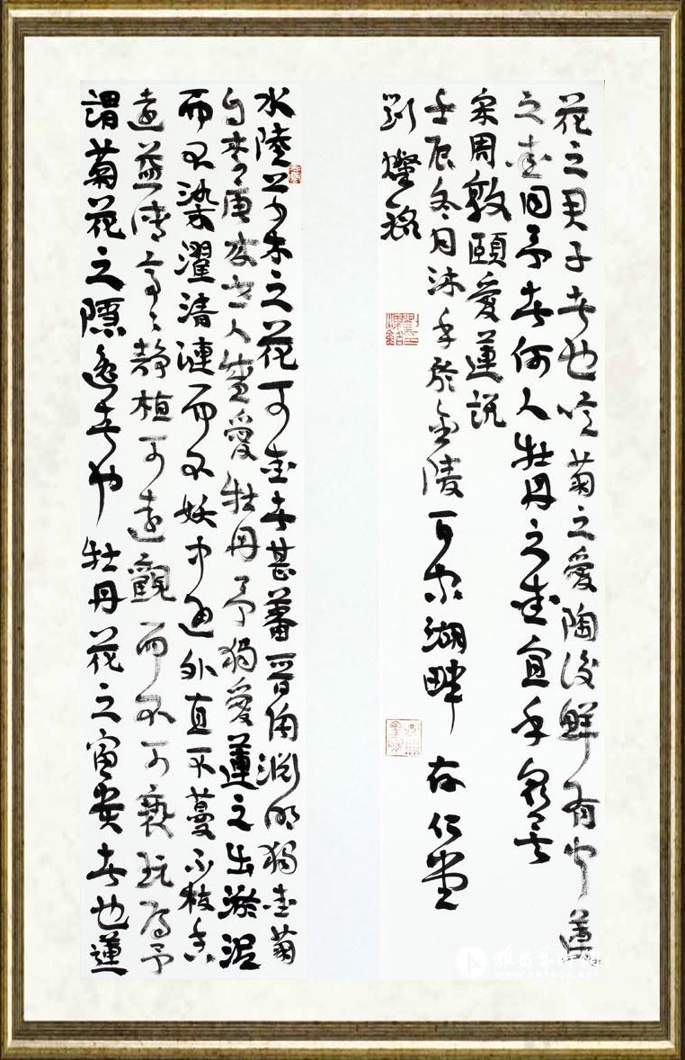 水陸草木之花可愛者甚蕃晉陶淵明獨愛菊
自李唐來世人盛愛牡丹予獨愛蓮之出淤泥
而不染濯清漣而不妖中通外直不蔓不枝香
遠益清亭々靜植可遠觀而不可褻玩焉予
謂菊花之隱逸者也牡丹花之富貴者也蓮
花之君子者也噫菊之愛陶後鮮有聞蓮
之愛同予者何人牡丹之愛宜乎衆矣
宋周敦頤愛蓮説
壬辰冬月沐手於金陵百家湖畔存仁堂
劉燦銘